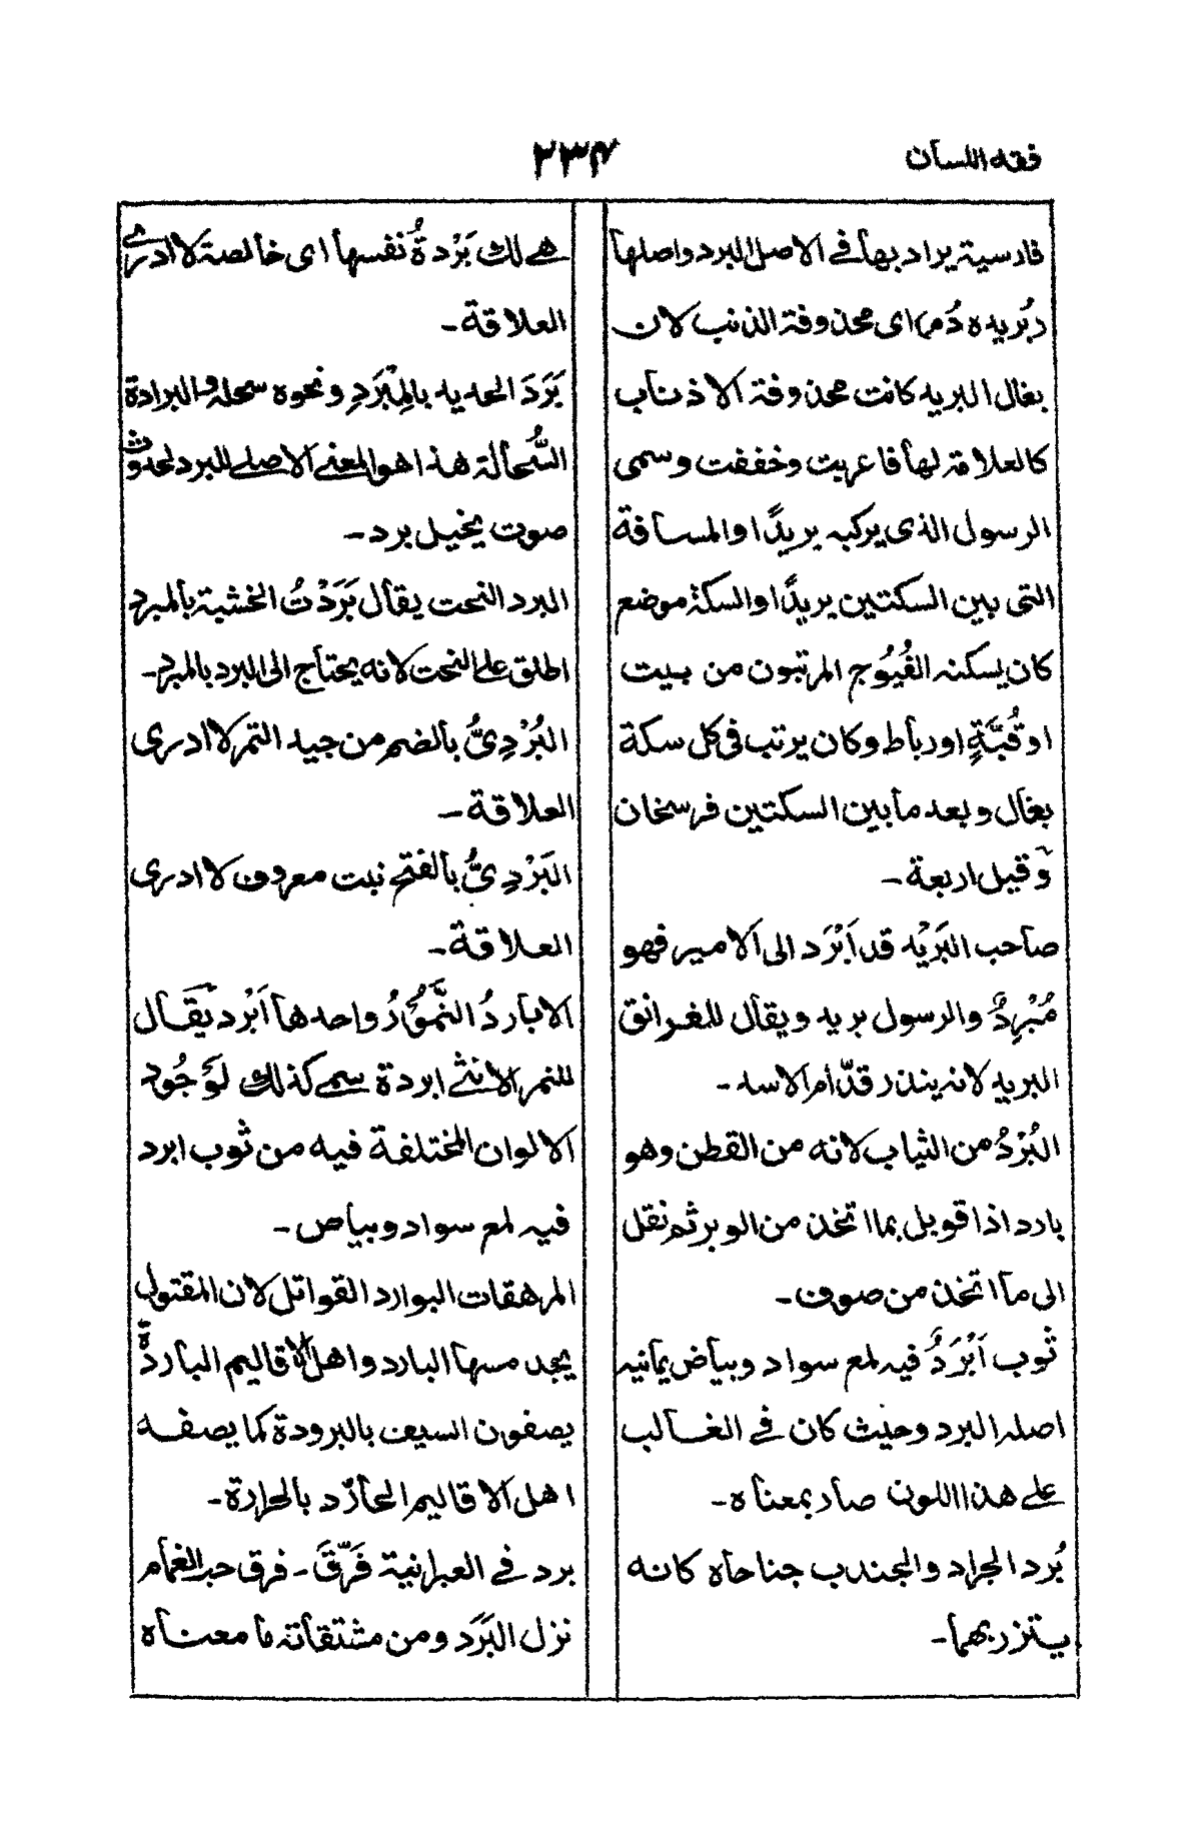 فقه اللسان
۲۳۴
فارسية يراد بها فى الاصل البرد واصلها
بُريده دُم اى محذوفة الذنب لان
بغال البريد كانت محذوفة الاذناب
كالعلامة لها فاعربت وخففت وسمى
الرسول الذى يركبه بريدًا والمسافة
التى بين السكتين بريدًا والسكة موضع
كان يسكنه الفُيُوج المرتبون من بيت
او قُبَّةٍ او رباط وكان يرتب فى كل سكة
بغال وبعد ما بين السكتين فرسخان
وقيل اربعة۔
صاحب البَرِيْد قد اَبْرَد الى الامير فهو
مُبْرِدٌ والرسول بريد ويقال للفرانق
البريد لانه ينذر قدّام الاسد۔
البُرْدُ من الثياب لانه من القطن وهو
بارد اذا قوبل بما اتخذ من الوبر ثم نقل
الى ما اتخذ من صوف۔
ثوب اَبْرَدُ فيه لمع سواد وبياض يمانية
اصله البرد وحيث كان فى الغالب
على هذا اللون صار بمعناه۔
بُرد الجراد والجندب جناحاه كانه
يتزر بهما۔
هى لك بَرْدةُ نفسها اى خالصة لا ادرى
العلاقة۔
بَرَدَ الحديد بالمِبْرَدِ ونحوه سحله والبرادة
السُّحالة هذا هو المعنى الاصلى للبرد لحدوث
صوت يخيل برد۔
البرد النحت يقال بَرَدْتُ الخشبة بالمبرد
اطلق على النحت لانه يحتاج الى البرد بالمبرد۔
البُرْدِىُّ بالضم من جيد التمر لا ادرى
العلاقة۔
البَرْدِىُّ بالفتح نبت معروف لا ادرى
العلاقة۔
الاباردُ النُّمُوْرُ واحدها اَبْرد يقال
للنمر الانثى ابردة سمى كذلك لوَجُود
الالوان المختلفة فيه من ثوب ابرد
فيه لمع سواد وبياض۔
المرهفات البوارد القواتل لان المقتول
يجد مسها البارد واهل الاقاليم الباردة
يصفون السيف بالبرودة كما يصفه
اهل الاقاليم الحارّة بالحرارة۔
برد فى العبرانية فَرَّقَ ۔ فرق حب الغمام
نزل البَرَد ومن مشتقاته ما معناه